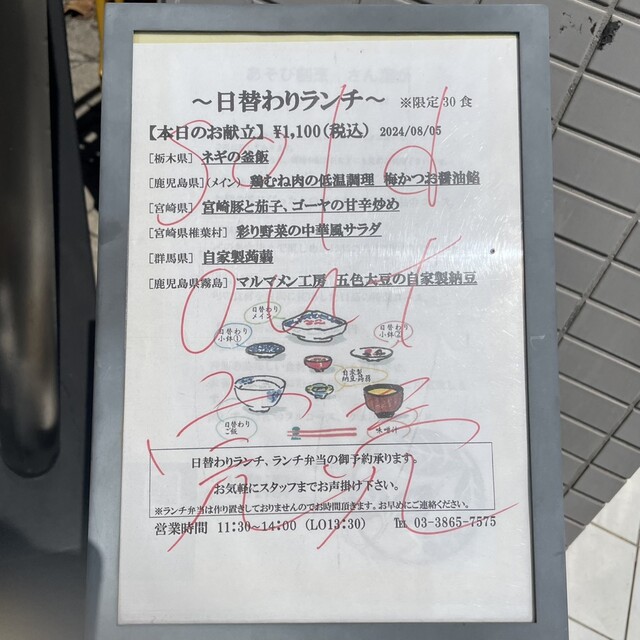 ～日替わりランチ～ ※限定30食
【本日のお献立】 ¥1,100(税込) 2024/08/05
[栃木県] ネギの釜飯
[鹿児島県](メイン) 鶏むね肉の低温調理 梅かつお醤油餡
[宮崎県] 宮崎豚と茄子、ゴーヤの甘辛炒め
[宮崎県椎葉村] 彩り野菜の中華風サラダ
[群馬県] 自家製蒟蒻
[鹿児島県霧島] マルマメン工房 五色大豆の自家製納豆
Sold
out
完売
日替わり
メイン
日替わり
小鉢①
日替わり
小鉢②
自家製
納豆蒟蒻
日替わり
ご飯
味噌汁
日替わりランチ、ランチ弁当の御予約承ります。
お気軽にスタッフまでお声掛け下さい。
※ランチ弁当は作り置きしておりませんのでお時間頂きます。お早めにご連絡ください。
営業時間 11:30~14:00 (LO13:30) ℡ 03-3865-7575